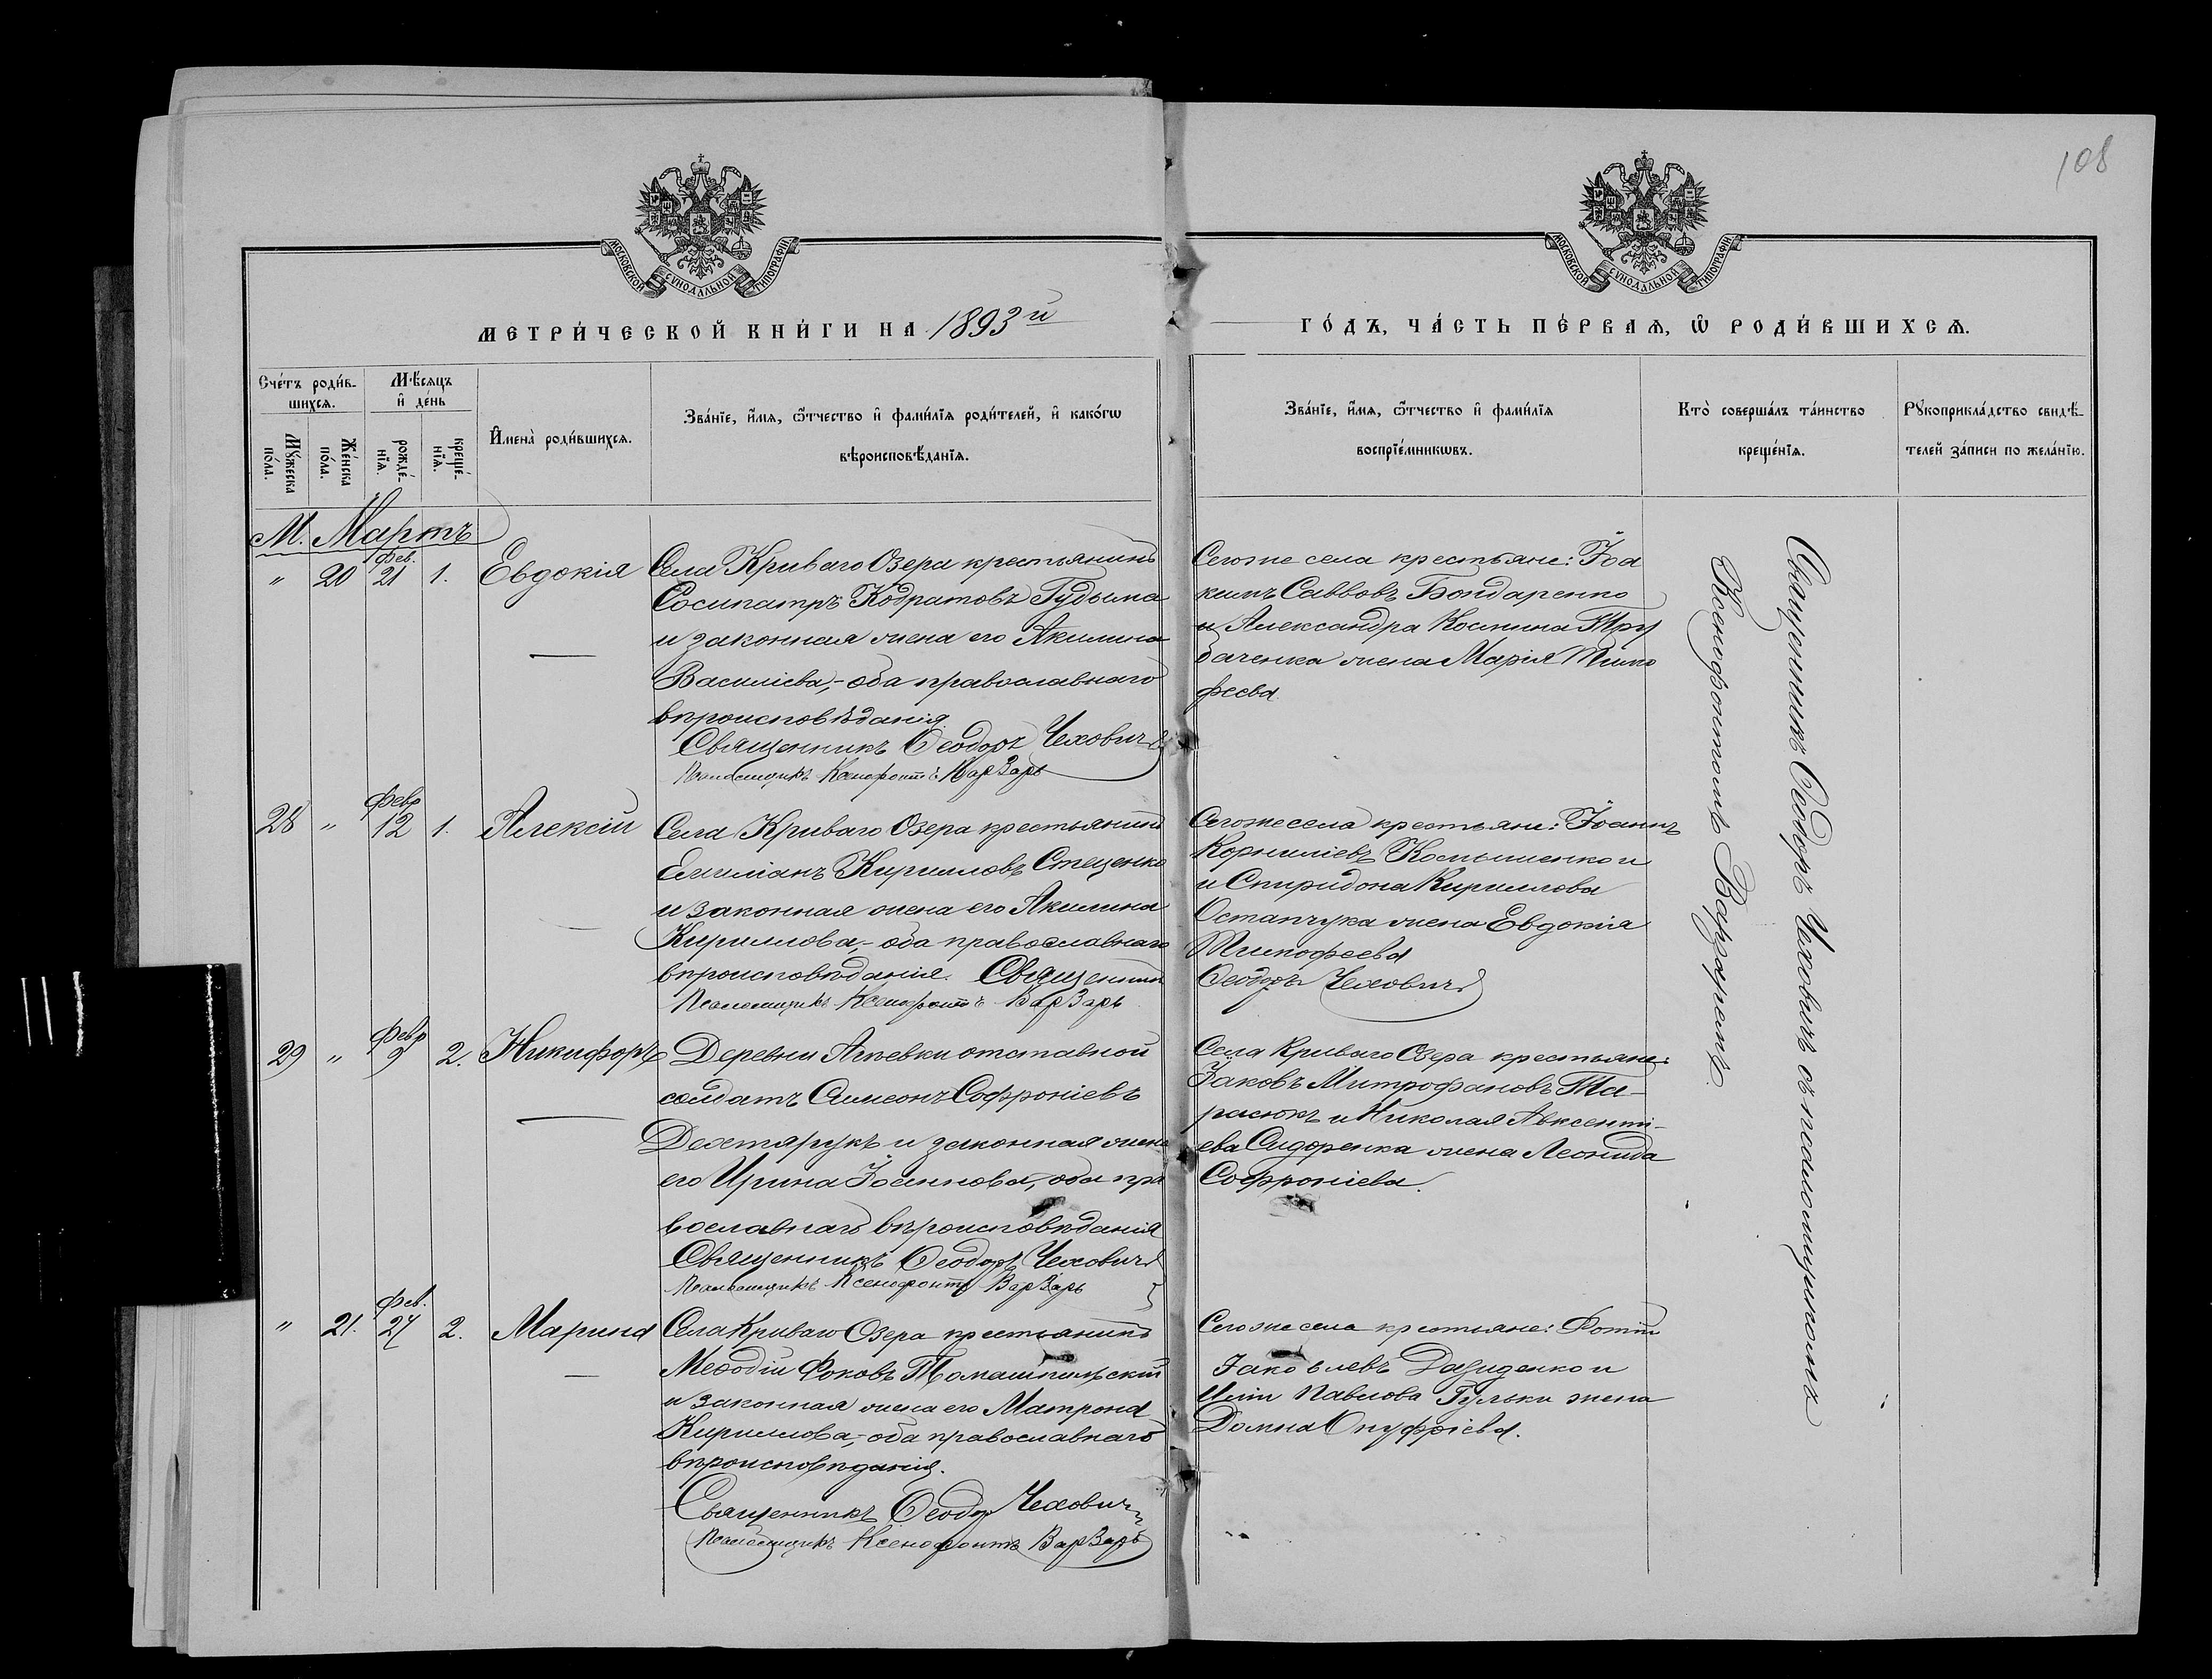 108
МОСКОВСКОЙ СѴНОДАЛЬНОЙ ТИПОГРАФІИ
МОСКОВСКОЙ СѴНОДАЛЬНОЙ ТИПОГРАФІИ
МЕТРИ́ЧЕСКОЙ КНИ́ГИ НА 1893й
ГО́ДЪ, ЧА́СТЬ ПЕ́РВАѦ, Ѿ РОДИ́ВШИХСѦ.
Сче́тъ роди́в-
шихсѧ.
Мꙋ́жеска
по́ла.
Же́нска
по́ла.
Мѣ́сѧцъ
и҆ де́нь
рожде́-
нїѧ.
креще́-
нїѧ.
И҆мена̀ роди́вшихсѧ.
Зва́нїе, и҆́мѧ, ѻ҆́тчество и҆ фами́лїѧ роди́телей, и҆ како́гѡ
вѣроисповѣ́данїѧ.
Зва́нїе, и҆́мѧ, ѻ҆́тчество и҆ фами́лїѧ
воспрїе́мникѡвъ.
Кто̀ соверша́лъ та́инство
креще́нїѧ.
Рꙋкоприкла́дство свидѣ́-
телей за́писи по жела́нїю.
М. Мартъ
" 20 Фев. 21 1. Евдокія
Села Криваго Озера крестьянинъ
Сосипатръ Кодратовъ Гудыма
и законная жена его Акилина
Василіева,- оба православнаго
вѣроисповѣданія.
Священникъ Ѳеодоръ Чеховичъ
Псаломщикъ Ксенофонтъ ВарЗарь
Сегоже села крестьяне: Іоа
кимъ Саввовъ Бондаренко
и Александра Космина Тру
баченка жена Марія Тимо
феева.
28 " Февр 12 1. Алексій
Села Криваго Озера крестьянинъ
Емиліанъ Кирилловъ Стеценко
и законная жена его Акилина
Кириллова,- оба православнаго
вѣроисповѣданія. Священникъ
Псаломщикъ Ксенофонтъ ВарЗарь
Сегоже села крестьяне: Іоаннъ
Корниліевъ Комышенко и
и Спиридона Кириллова
Остапчука жена Евдокія
Тимофеева
Ѳеодоръ Чеховичъ
29 " Февр 9 2. Никифоръ
Деревни Агѣевки отставной
солдатъ Симеонъ Софроніевъ
Дехтярукъ и законная жена
его Ирина Іоаннова, оба пра
вославнаго вѣроисповѣданія
Священникъ Ѳеодоръ Чеховичъ
Псаломщикъ Ксенофонтъ ВарЗарь
Села Криваго Озера крестьяне:
Іаковъ Митрофановъ Та-
расюкъ и Николая Авксенті-
ева Сидоренка жена Леонида
Софроніева.
" 21. Фев. 27 2. Марина
Села Криваго Озера крестьянинъ
Меѳодій Фоковъ Томашпильскій
и законная жена его Матрона
Кириллова,- оба православнаго
вѣроисповѣданія.
Священникъ Ѳеодоръ Чеховичъ
Псаломщикъ Ксенофонтъ ВарЗарь
Сегоже села крестьяне: Фотій
Іаковлевъ Давиденко и
Иліи Павлова Гульки жена
Домна Онуфріева.
Священникъ Ѳеодоръ Чеховичъ съ псаломщикомъ
Ксенофонтомъ Варзаремъ.